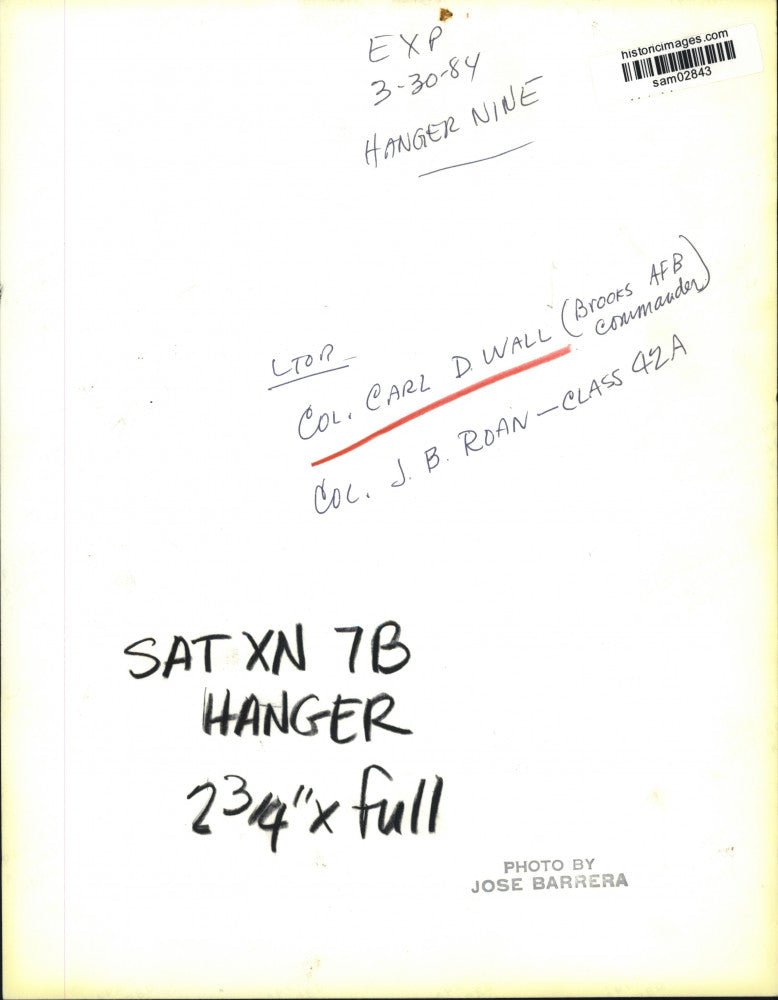 EXP
3-30-84
HANGER NINE
historicimages.com
sam02843
LTOR
COL. CARL D. WALL (BROOKS AFB
commander)
COL. J. B. ROAN - CLASS 42A
SAT XN 7B
HANGER
2 3/4" x full
PHOTO BY
JOSE BARRERA